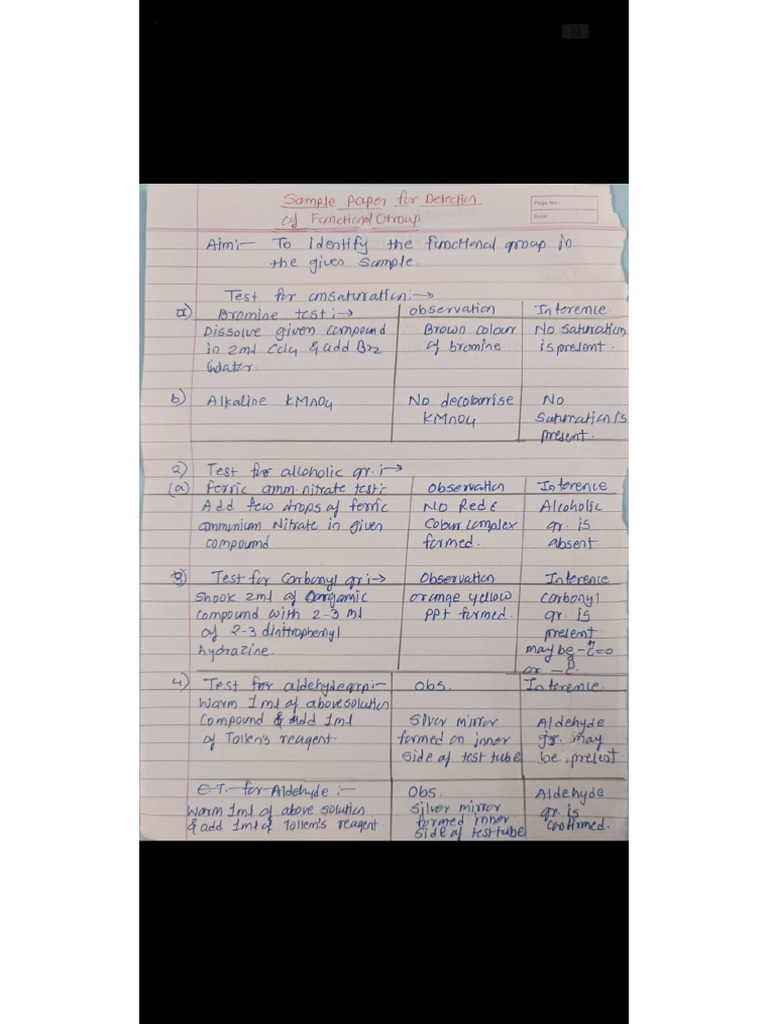 Sample paper for Detection
of Functional Group
Page No.:
Date:
Aim:- To Identify the functional group in
the given Sample.
Test for unsaturation:->
a) Bromine test:-> observation Inference
Dissolve given compound Brown colour No saturation
in 2ml CCl4 & add Br2 of bromine is present.
Water.
b) Alkaline KMnO4 No decolourise No
KMnO4 Saturation is
present.
2) Test for alcoholic gr.:->
(a) Ferric amm. nitrate test: Observation Inference
Add few drops of ferric NO Red Alcoholic
ammonium Nitrate in given Colour complex gr. is
compound formed. absent.
3) Test for Carbonyl gr:-> Observation Inference
Shook 2ml of Oorgamic orange yellow Carbonyl
compound with 2-3 ml PPt formed. gr. is
of 2-3 dinitrophenyl present
hydrazine. may be -C=O
or -C
4) Test for aldehyde grp:- Obs. Inference
Warm 1ml of above solution
Compound & add 1ml Silver mirror Aldehyde
of Tollen's reagent formed on inner gr. may
Side of test tube be present
C.T. for Aldehyde:- Obs. Aldehyde
Warm 1ml of above solution Silver mirror gr. is
& add 1ml of Tollem's reagent formed inner confirmed.
Side of test tube